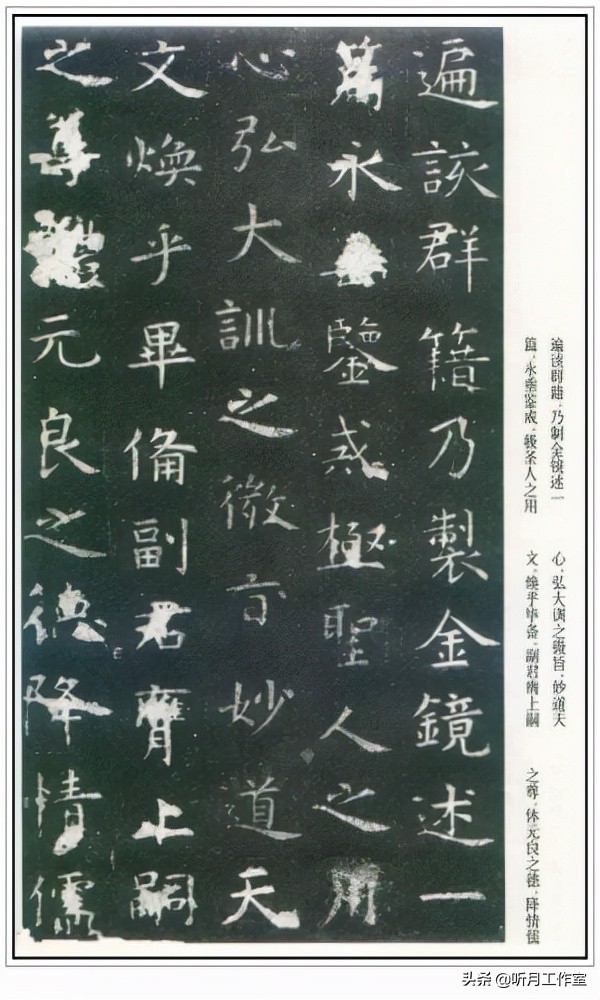 遍該群籍乃製金鏡述一
篇永垂鑒戒極聖人之用
心弘大訓之微旨妙道天
文煥乎畢備副君膺上嗣
之尊體元良之德降情儒
遍该群籍，乃制金镜述一
篇，永垂鉴戒，极圣人之用
心，弘大训之微旨，妙道天
文，焕乎毕备，副君膺上嗣
之尊，体元良之德，降情儒
头条 @听月工作室